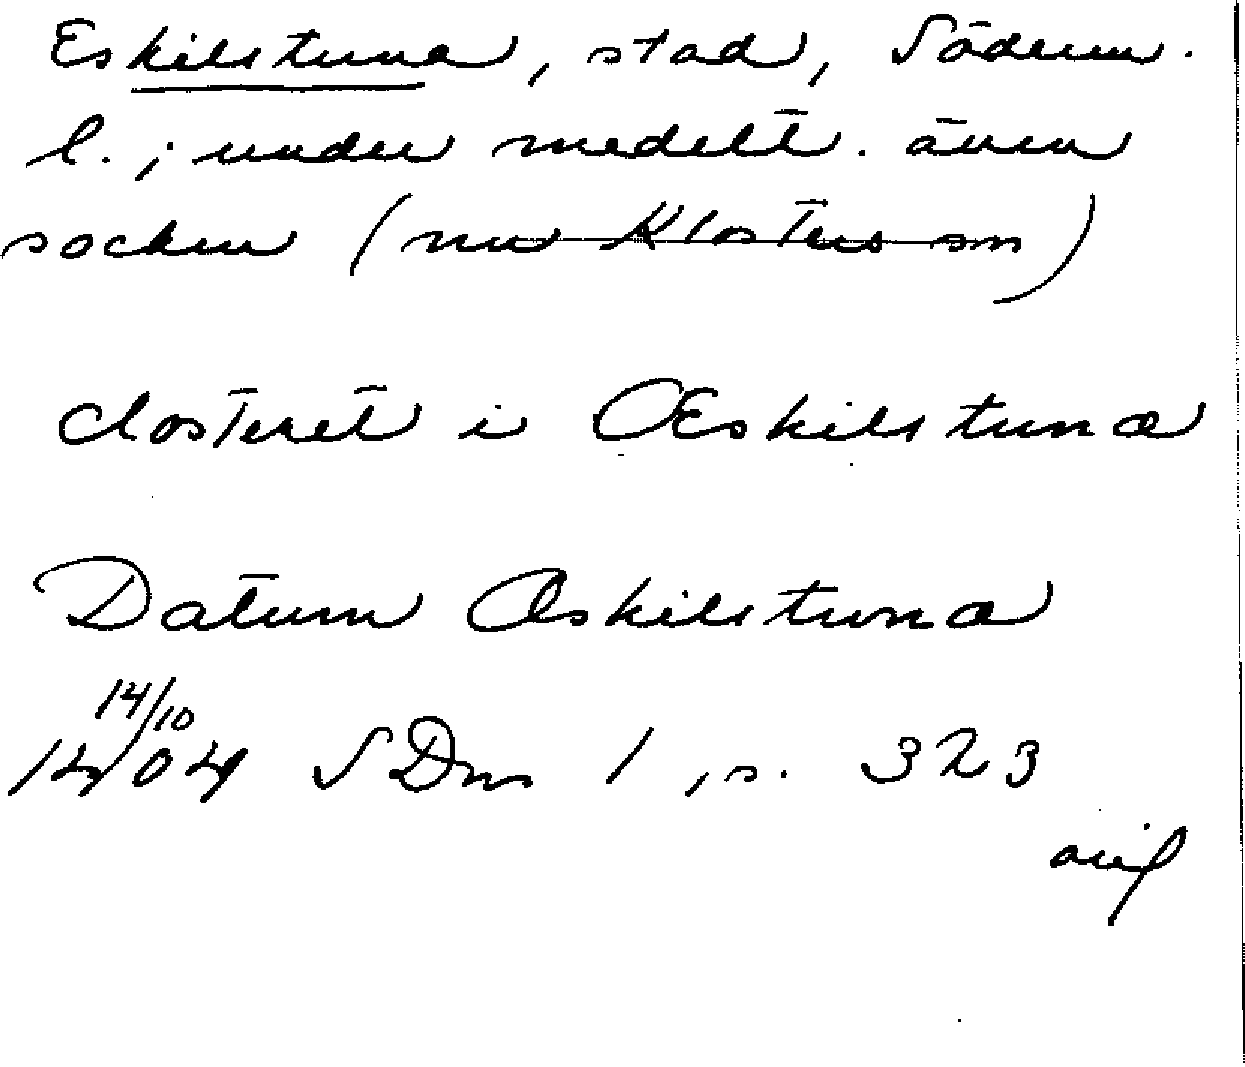 Eskilstuna, stad, Söderm.
l.; under medelt. även
socken (nu Klosters sn)
closteret i Œskilstuna
Datum Œskilstuna
14/10
1404 SDns 1, s. 323
orig